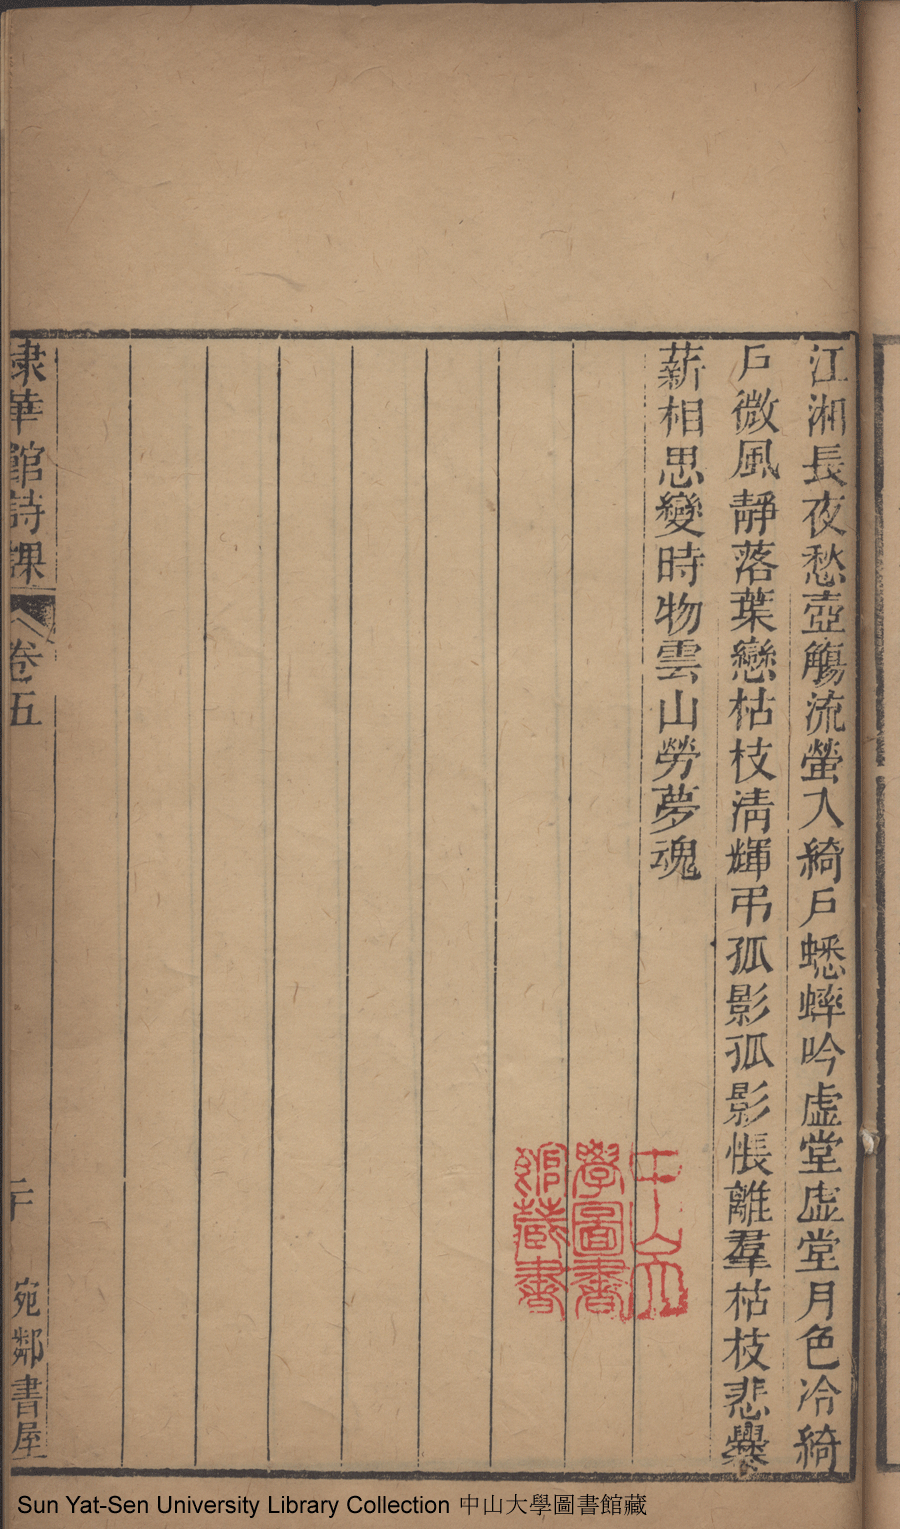 江湘長夜愁壺觴流螢入綺戶蟋蟀吟虛堂虛堂月色冷綺
戶微風靜落葉戀枯枝清輝弔孤影孤影悵離羣枯枝悲爨
薪相思變時物雲山勞夢魂
中山大
學圖書
館藏書
棣華館詩課
卷五
二十
宛鄰書屋
Sun Yat-Sen University Library Collection 中山大學圖書館藏